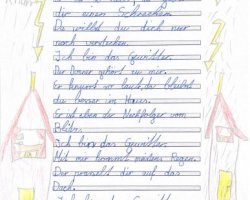 dir einen Schrecken.
Da willst du dich nur
noch verstecken.
Ich bin das Gewitter.
Der Donner gehört zu mir.
Er kommt so laut, da bleibst
du besser im Haus.
Er ist eben der Nachfolger vom
Blitz.
Ich bin das Gewitter.
Mit mir kommt meistens Regen.
Der prasselt dir auf das
Dach.
Ich bin das Gewitter.